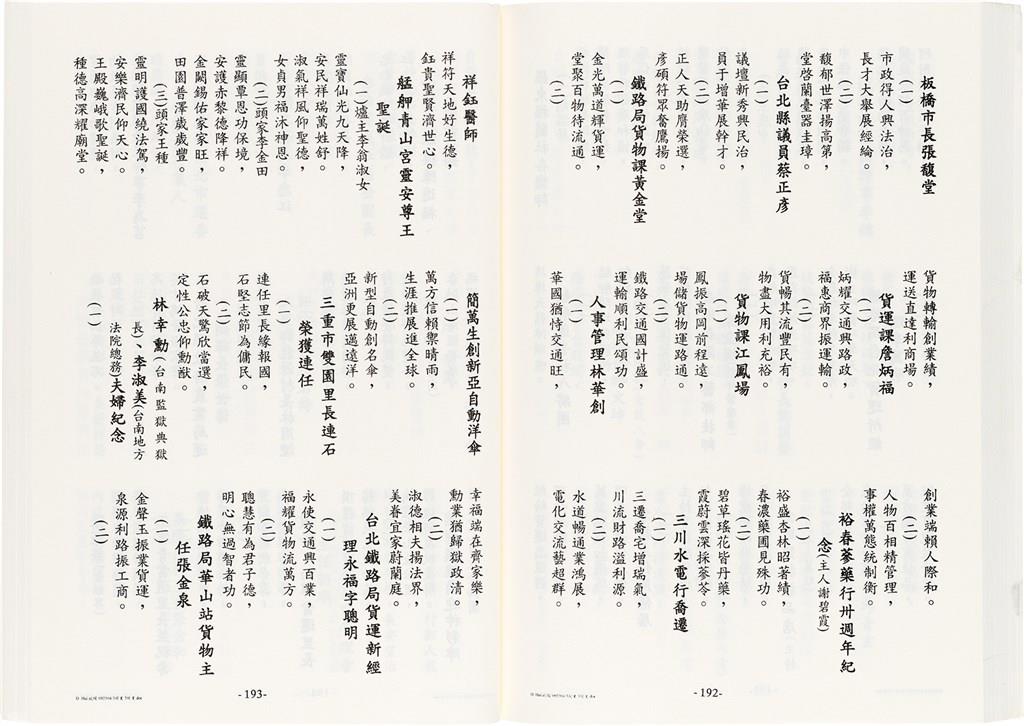 板橋市長張馥堂
(一)
市政得人興法治，
長才大舉展經綸。
(二)
馥郁世澤揚高第，
堂啓蘭臺器圭璋。
台北縣議員蔡正彥
(一)
議壇新秀興民治，
員于增華展幹才。
(二)
正人天助膺榮選，
彥碩符眾奮鷹揚。
鐵路局貨物課黃金堂
(一)
金光萬道輝貨運，
堂聚百物待流通。
(二)
貨物轉輸創業績，
運送直達利商場。
貨運課詹炳福
(一)
炳耀交通興路政，
福惠商界振運輸。
(二)
貨暢其流豐民有，
物盡大用利充裕。
貨物課江鳳場
(一)
鳳振高岡前程遠，
場儲貨物運路通。
(二)
鐵路交通國計盛，
運輸順利民頌功。
人事管理林華創
(一)
華國猶恃交通旺，
創業端賴人際和。
(二)
人物百相精管理，
事權萬態統制衡。
裕春蔘藥行卅週年紀
念(主人謝碧霞)
(一)
裕盛杏林昭著績，
春濃藥圃見殊功。
(二)
碧草瑤花皆丹藥，
霞蔚雲深採蔘苓。
三川水電行喬遷
(一)
三遷喬宅增瑞氣，
川流財路溢利源。
(二)
水道暢通業鴻展，
電化交流藝超群。
-192-
祥鈺醫師
祥符天地好生德，
鈺貴聖賢濟世心。
艋舺青山宮靈安尊王
聖誕
(一)爐主李翁淑女
靈寶仙光九天降，
安民祥瑞萬姓舒。
淑氣祥風仰聖德，
女貞男福沐神恩。
(二)頭家李金田
靈顯覃恩功保境，
安護赤黎德降祥。
金闕錫佑家家旺，
田園普澤歲歲豐。
(三)頭家王種
靈明護國繞法駕，
安樂濟民仰天心。
王殿巍峨歌聖誕，
種德高深耀廟堂。
簡萬生創新亞自動洋傘
(一)
萬方信賴禦晴雨，
生涯推展進全球。
(二)
新型自動創名傘，
亞洲更展邁遠洋。
三重市雙園里長連石
榮獲連任
(一)
連任里長緣報國，
石堅志節為傭民。
(二)
石破天驚欣當選，
定性公忠仰勳猷。
林幸勳(台南監獄典獄
長)、李淑美(台南地方
法院總務)夫婦紀念
(一)
幸福端在齊家樂，
勳業猶歸獄政清。
(二)
淑德相夫揚法界，
美眷宜家蔚蘭庭。
台北鐵路局貨運新經
理永福字聰明
(一)
永使交通興百業，
福耀貨物流萬方。
(二)
聰慧有為君子德，
明心無過智者功。
鐵路局華山站貨物主
任張金泉
(一)
金聲玉振業貨運，
泉源利路振工商。
(二)
-193-